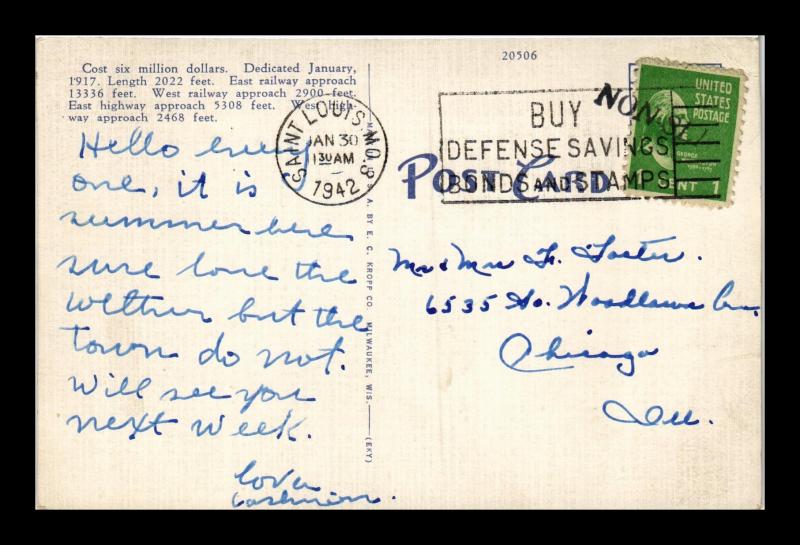 20506
Cost six million dollars. Dedicated January,
1917. Length 2022 feet. East railway approach
13336 feet. West railway approach 2900 feet.
East highway approach 5308 feet. West high-
way approach 2468 feet.
SAINT LOUIS, MO. 8
JAN 30
1 30 AM
1942
BUY
DEFENSE SAVINGS
BONDS AND STAMPS
UNITED
STATES
POSTAGE
GEORGE
1
POST CARD
A. BY E. C. KROPP CO. MILWAUKEE, WIS.
(EKY)
Hello every
one, it is
summer here
sure love the
wether but the
Town do not.
will see you
next week.
Love
Mr & Mrs F. Foster.
6535 So. Woodlawn Ave.
Chicago
Ill.